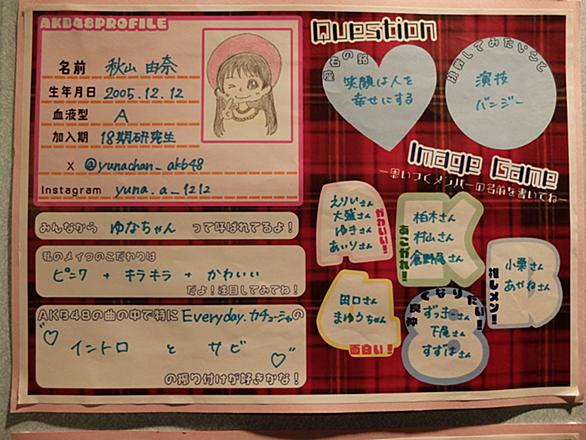 AKB48PROFILE
名前 秋山 由奈
生年月日 2005.12.12
血液型 A
加入期 18期研究生
X @yunachan_akb48
Instagram yuna.a_1212
みんなから ゆなちゃん って呼ばれてるよ!
私のメイクのこだわりは
ピンク + キラキラ + かわいい
だよ!注目してみてね!
AKB48の曲の中で特に Everyday、カチューシャの
イントロ と サビ
の振り付けが好きかな!
Question
座右の銘
笑顔は人を
幸せにする
挑戦してみたいこと
演技
バンジー
Image Game
ー思いつくメンバーの名前を書いてねー
かわいい!
えりいさん
大盛さん
ゆきさん
あいりさん
あこがれ!
柏木さん
村山さん
倉野尾さん
推しメン!
小栗さん
あやねさん
面白い!
田口さん
まゆうちゃん
仲良くなりたい!
ずっきーさん
下尾さん
すずはさん